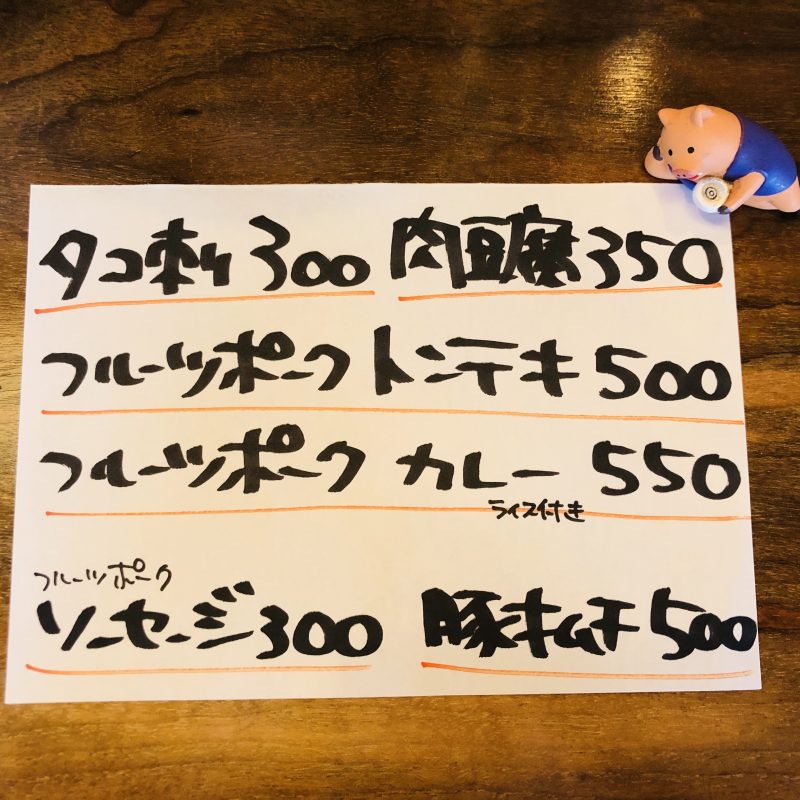 タコ刺り 300 肉豆腐 350
フルーツポーク トンテキ 500
フルーツポーク カレー 550
ライス付き
フルーツポーク
ソーセージ 300 豚キムチ 500